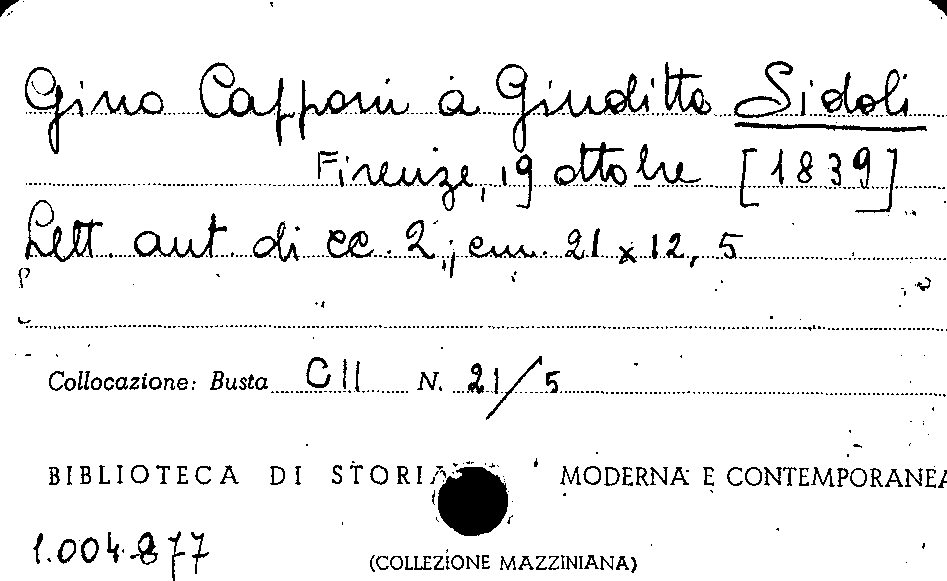 Gino Capponi a Giuditta Sidoli
Firenze, 19 ottobre [1839]
Lett. aut. di cc. 2; cm. 21 x 12,5
Collocazione: Busta CII N. 21/5
BIBLIOTECA DI STORIA MODERNA E CONTEMPORANEA
1.004.877
(COLLEZIONE MAZZINIANA)